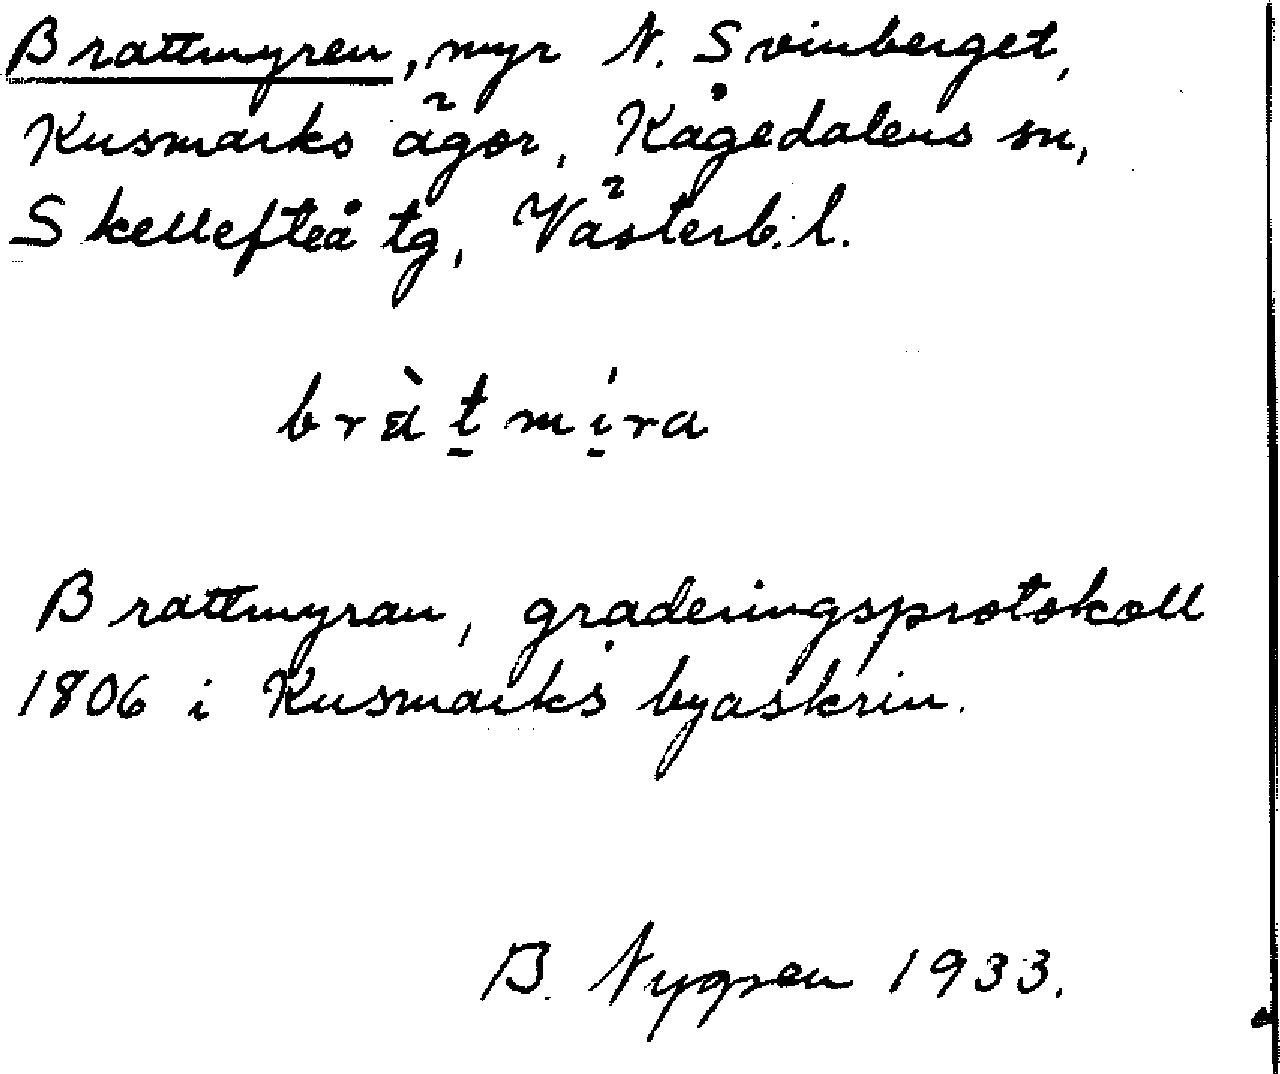 Brattmyren, myr N. Svinberget,
Kusmarks ägor, Kågedalens sn,
Skellefteå tg, Västerb. l.
bràt̠mí̠ra
Brattmyran, graderingsprotokoll
1806 i Kusmarks byaskrin.
B. Nygren 1933.